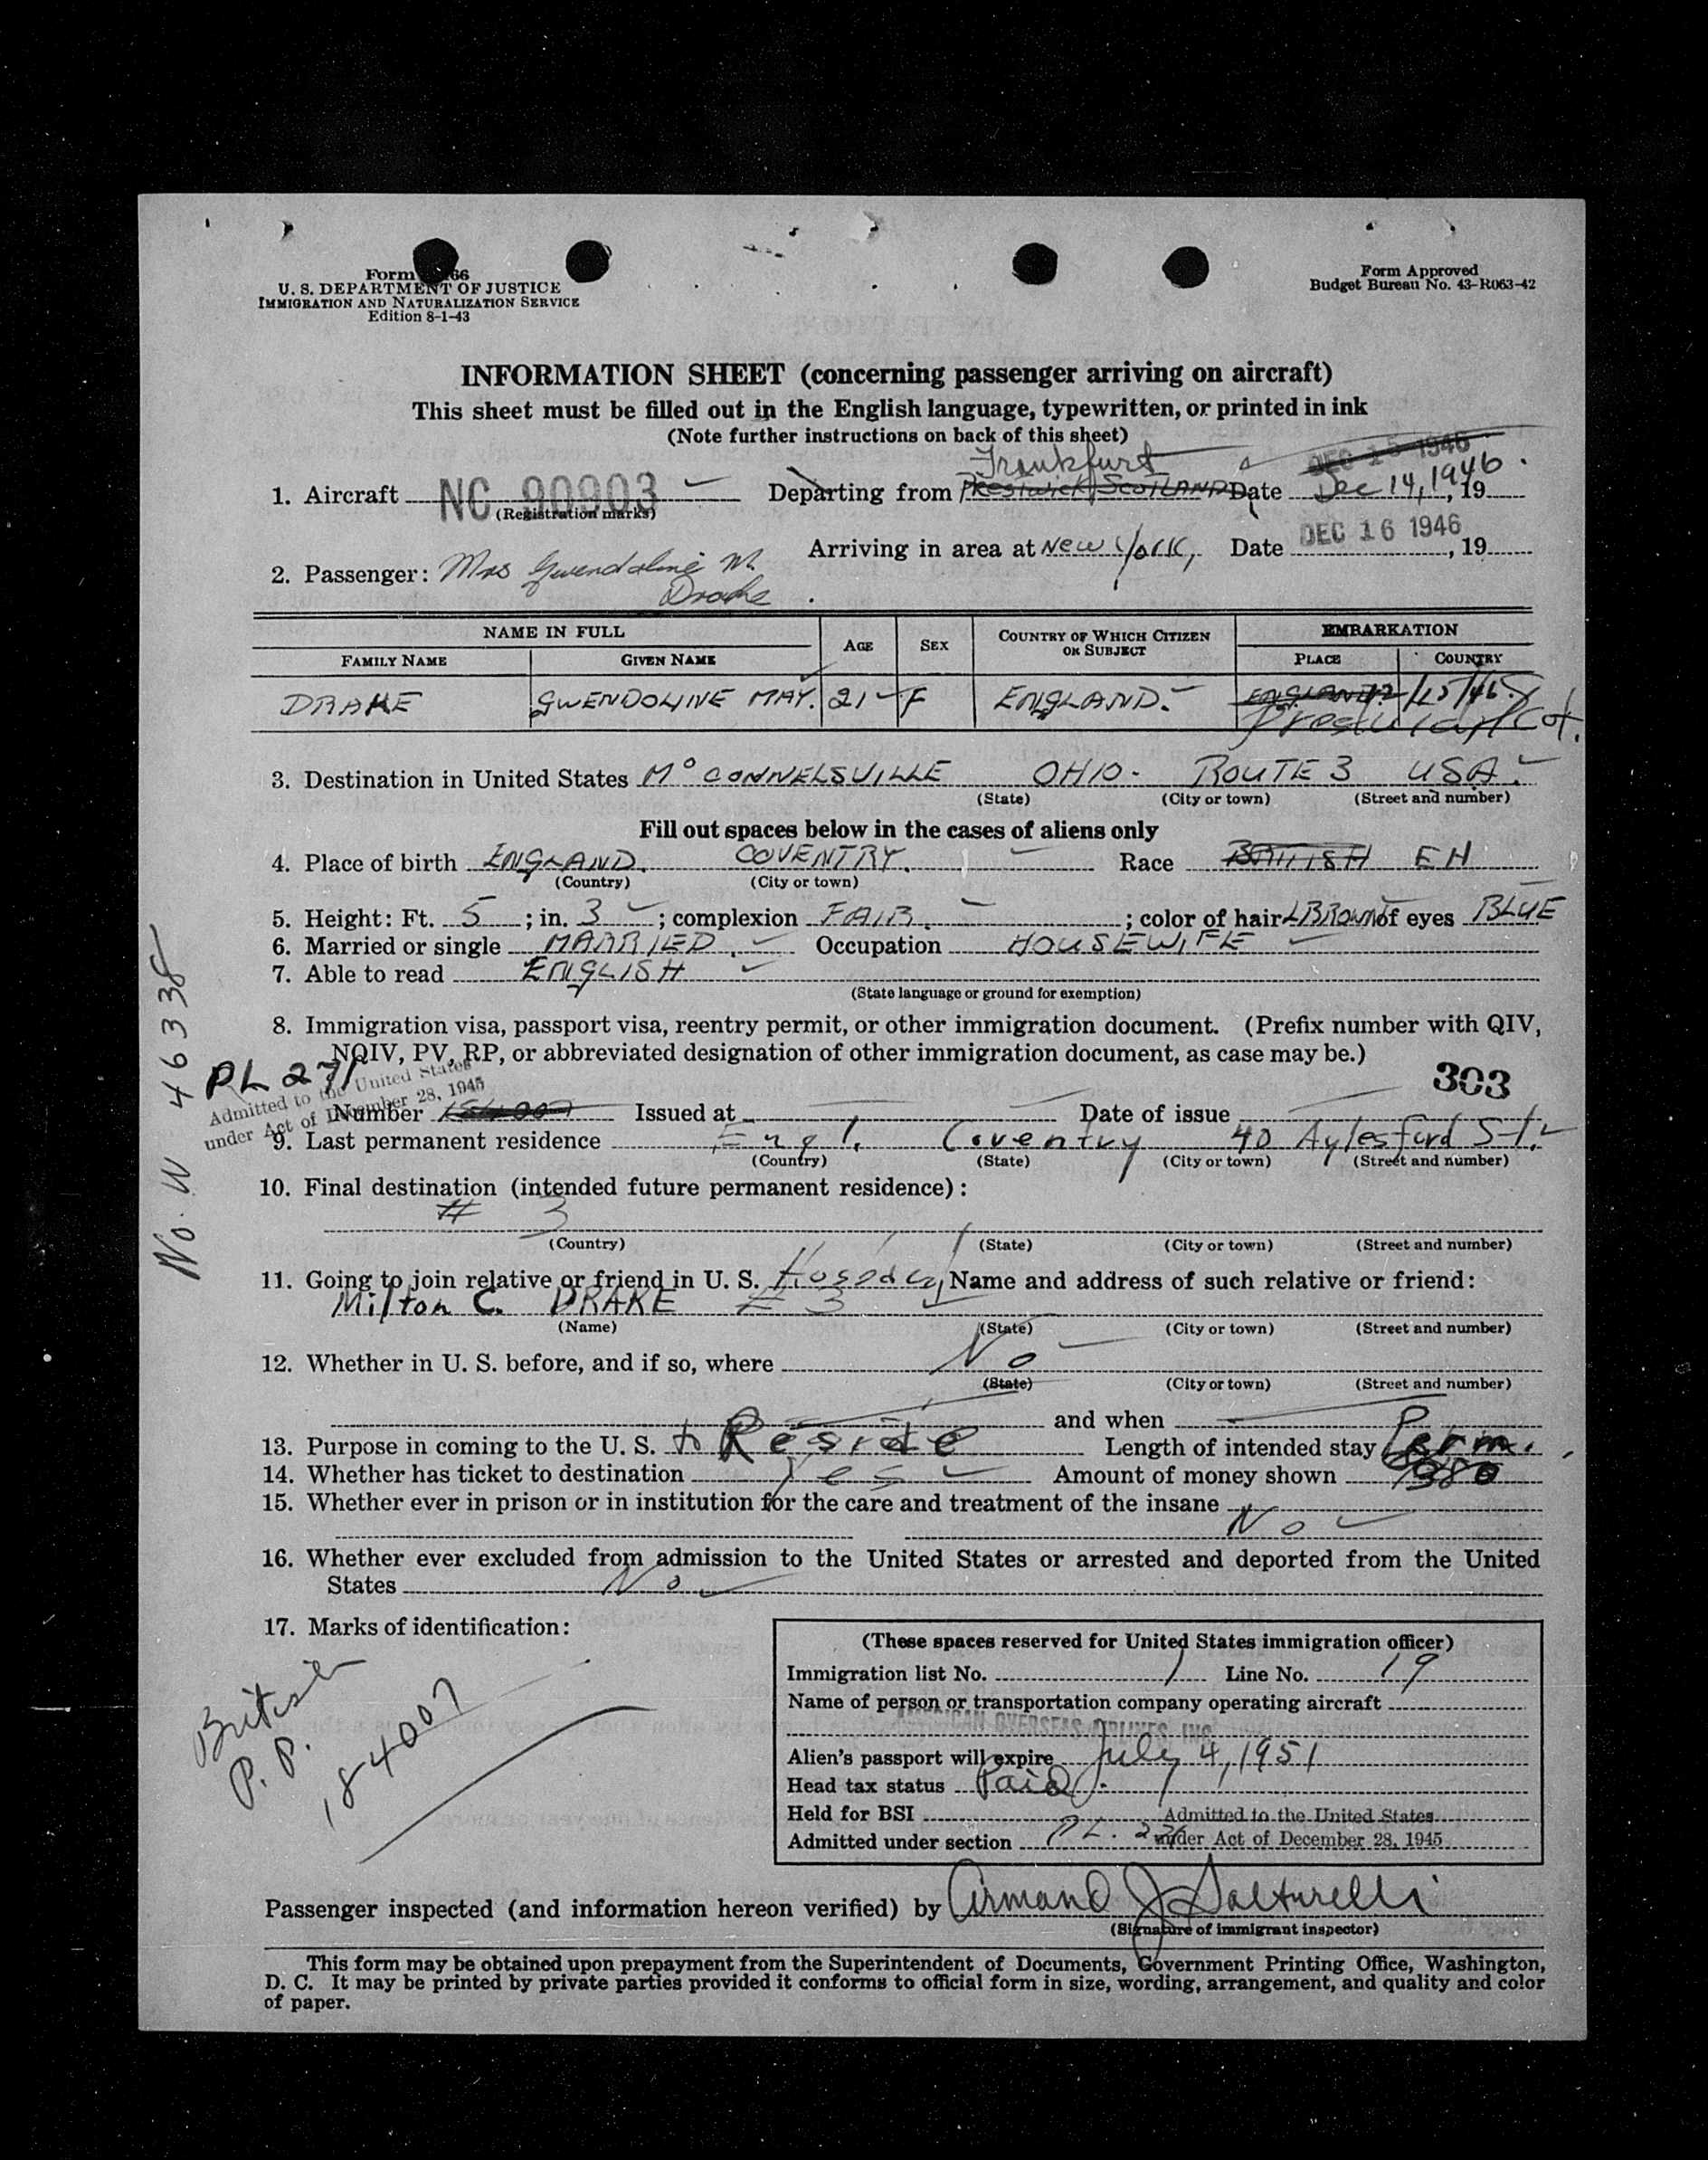 Form 66
U. S. DEPARTMENT OF JUSTICE
IMMIGRATION AND NATURALIZATION SERVICE
Edition 8-1-43
Form Approved
Budget Bureau No. 43-R063-42
INFORMATION SHEET (concerning passenger arriving on aircraft)
This sheet must be filled out in the English language, typewritten, or printed in ink
(Note further instructions on back of this sheet)
Frankfurt DEC 15 1946
1. Aircraft NC 90903 Departing from Prestwick Scotland Date Dec 14, 1946, 19
(Registration marks)
Arriving in area at New York, Date DEC 16 1946, 19
2. Passenger: Mrs Gwendoline M.
Drake
NAME IN FULL AGE SEX COUNTRY OF WHICH CITIZEN OR SUBJECT EMBARKATION
FAMILY NAME GIVEN NAME PLACE COUNTRY
DRAKE GWENDOLINE MAY. 21 F ENGLAND. ENGLAND 12/15/46
Prestwick Scot.
3. Destination in United States McCONNELSVILLE OHIO. ROUTE 3 USA.
(State) (City or town) (Street and number)
Fill out spaces below in the cases of aliens only
4. Place of birth ENGLAND. COVENTRY. Race BRITISH EH
(Country) (City or town)
5. Height: Ft. 5; in. 3; complexion FAIR.; color of hair LBROWN of eyes BLUE
6. Married or single MARRIED. Occupation HOUSEWIFE
7. Able to read ENGLISH
(State language or ground for exemption)
8. Immigration visa, passport visa, reentry permit, or other immigration document. (Prefix number with QIV,
NQIV, PV, RP, or abbreviated designation of other immigration document, as case may be.)
PL 271
303
Admitted to the United States
under Act of December 28, 1945
Number Issued at Date of issue
9. Last permanent residence Engl. Coventry 40 Aylesford St.
(Country) (State) (City or town) (Street and number)
10. Final destination (intended future permanent residence):
# 3
(Country) (State) (City or town) (Street and number)
11. Going to join relative or friend in U. S. Husband Name and address of such relative or friend:
Milton C. DRAKE # 3
(Name) (State) (City or town) (Street and number)
12. Whether in U. S. before, and if so, where No
(State) (City or town) (Street and number)
and when
13. Purpose in coming to the U. S. to Reside Length of intended stay Perm.
14. Whether has ticket to destination Yes Amount of money shown
15. Whether ever in prison or in institution for the care and treatment of the insane No
16. Whether ever excluded from admission to the United States or arrested and deported from the United
States No
17. Marks of identification:
British
P. P.
184007
No. W 46338
(These spaces reserved for United States immigration officer)
Immigration list No. 1 Line No. 19
Name of person or transportation company operating aircraft
AMERICAN OVERSEAS AIRLINES, INC.
Alien's passport will expire July 4, 1951
Head tax status Paid.
Held for BSI Admitted to the United States
Admitted under section P.L. 271 under Act of December 28, 1945
Passenger inspected (and information hereon verified) by Armand J Salturelli
(Signature of immigrant inspector)
This form may be obtained upon prepayment from the Superintendent of Documents, Government Printing Office, Washington,
D. C. It may be printed by private parties provided it conforms to official form in size, wording, arrangement, and quality and color
of paper.